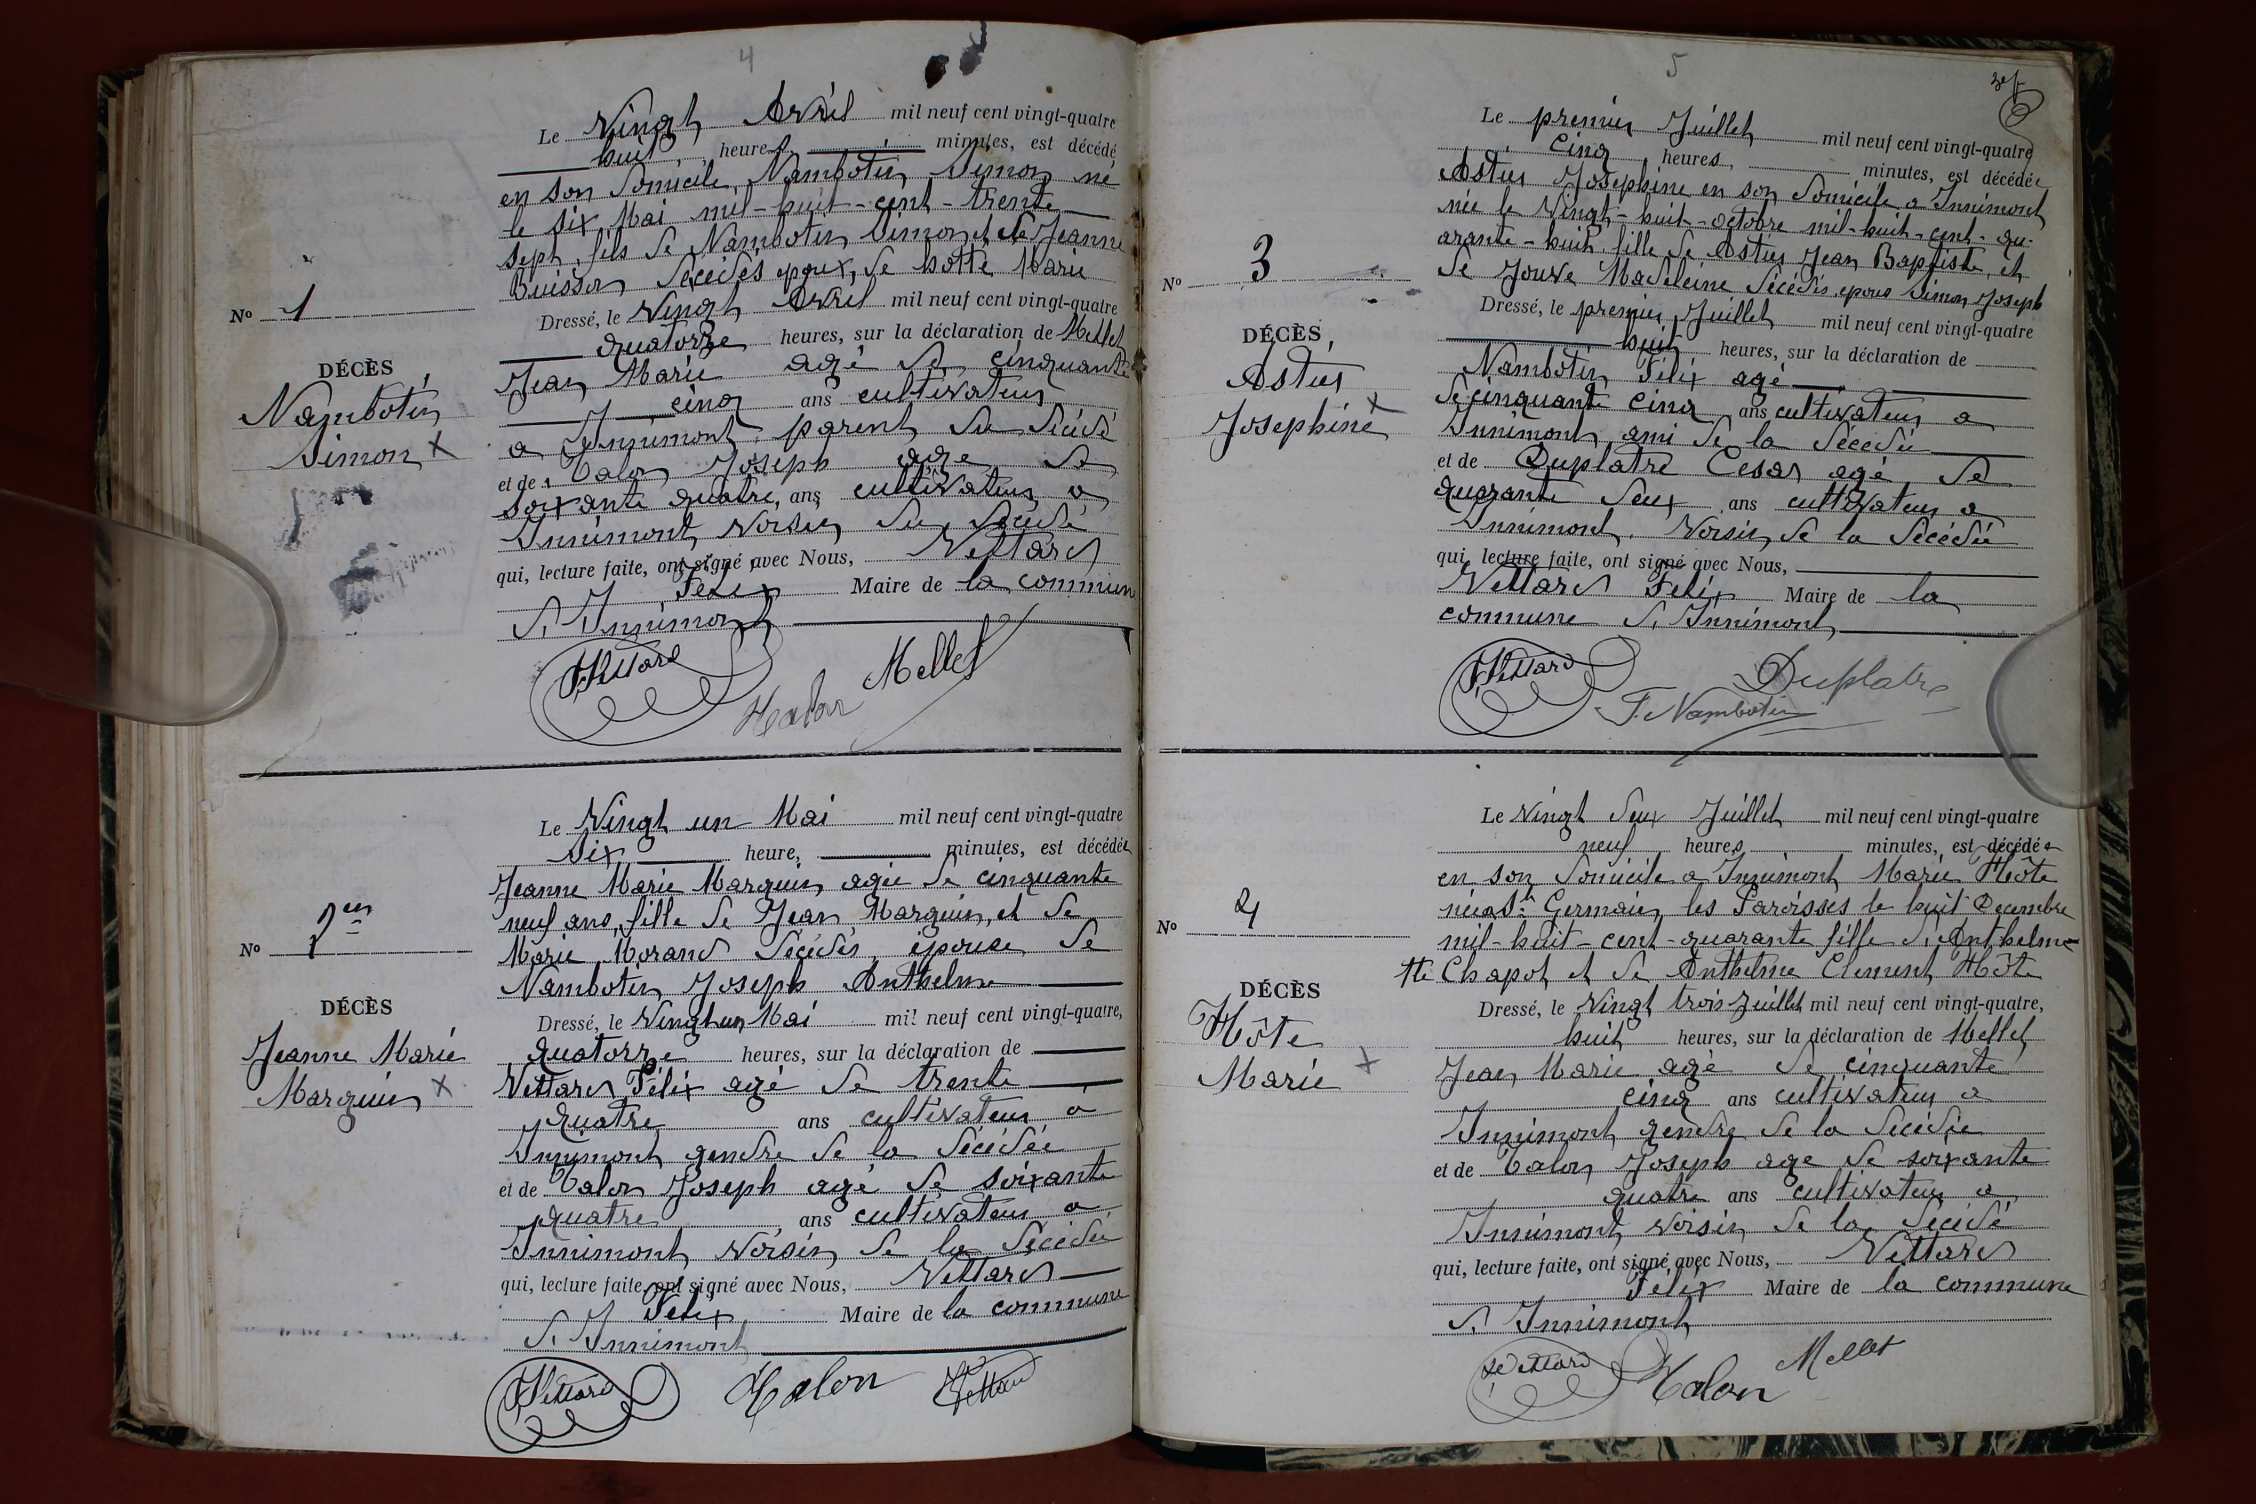 4
Le Vingt Avril mil neuf cent vingt-quatre
huit heures, minutes, est décédé
en son domicile, Nambotin Simon né
le six Mai mil-huit-cent-trente
sept, fils de Nambotin Simon et de Jeanne
Buisson décédés epoux, de hotte Marie
No 1
Dressé, le Vingt Avril mil neuf cent vingt-quatre
quatorze heures, sur la déclaration de Mellet
DÉCÈS
Nambotin
Simon x
Jean Marie agé de cinquante
cinq ans cultivateur
a Innimont, parent du décédé
et de Talon Joseph age de
soixante quatre, ans cultivateur a
Innimont, voisin du décédé
qui, lecture faite, ont signé avec Nous, Vettard
Felix Maire de la commun
d'Innimont
FVettard Talon Mellet
Le Vingt un Mai mil neuf cent vingt-quatre
Six heure, minutes, est décédée
Jeanne Marie Marguin agée de cinquante
neuf ans, fille de Jean Marguin, et de
Marie Morand décédés, épouse de
Nambotin Joseph Anthelme
No 2
DÉCÈS
Jeanne Marie
Marguin x
Dressé, le Vingt un Mai mil neuf cent vingt-quatre,
quatorze heures, sur la déclaration de
Vettard Félix agé de trente
quatre ans cultivateur à
Innimont gendre de la décédée
et de Talon Joseph agé de soixante
quatre, ans cultivateur a
Innimont, voisin de la décédée
qui, lecture faite, ont signé avec Nous, Vettard
Felix Maire de la commune
d'Innimont
FVettard Talon Vettard
5
Le premier Juillet mil neuf cent vingt-quatre
cinq heures, minutes, est décédée
Astier Josephine en son domicile a Innimont
née le Vingt-huit-octobre mil-huit-cent-qu-
arante-huit, fille de Astier Jean Baptiste, et
de Jouve Madeleine décédés, epous Simon Joseph
No 3
DÉCÈS
Astier
Josephine x
Dressé, le premier Juillet mil neuf cent vingt-quatre
huit heures, sur la déclaration de
Nambotin Félix agé
de cinquante cinq ans cultivateur a
Innimont, ami de la décédée
et de Duplatre Cesar agé de
quarante deux ans cultivateur a
Innimont. Voisin de la décédée
qui, lecture faite, ont signé avec Nous,
Vettard Felix Maire de la
commune d'Innimont
FVettard F. Nambotin Duplatre
Le Vingt deux Juillet mil neuf cent vingt-quatre
neuf heures minutes, est décédée
en son domicile a Innimont Marie Hôte
née a St Germain les Paroisses le huit Decembre
mil-huit-cent-quarante fille d'Anthelme
Hte Chapot et de Anthelme Clement Hôte
No 4
DÉCÈS
Hôte
Marie x
Dressé, le Vingt trois Juillet mil neuf cent vingt-quatre,
huit heures, sur la déclaration de Mellet
Jean Marie agé de cinquante
cinq ans cultivateur a
Innimont gendre de la décédée
et de Talon Joseph age de soixante
quatre ans cultivateur a
Innimont, voisin de la décédé
qui, lecture faite, ont signé avec Nous, Vettard
Felix Maire de la commune
d'Innimont
Vettard Talon Mellet